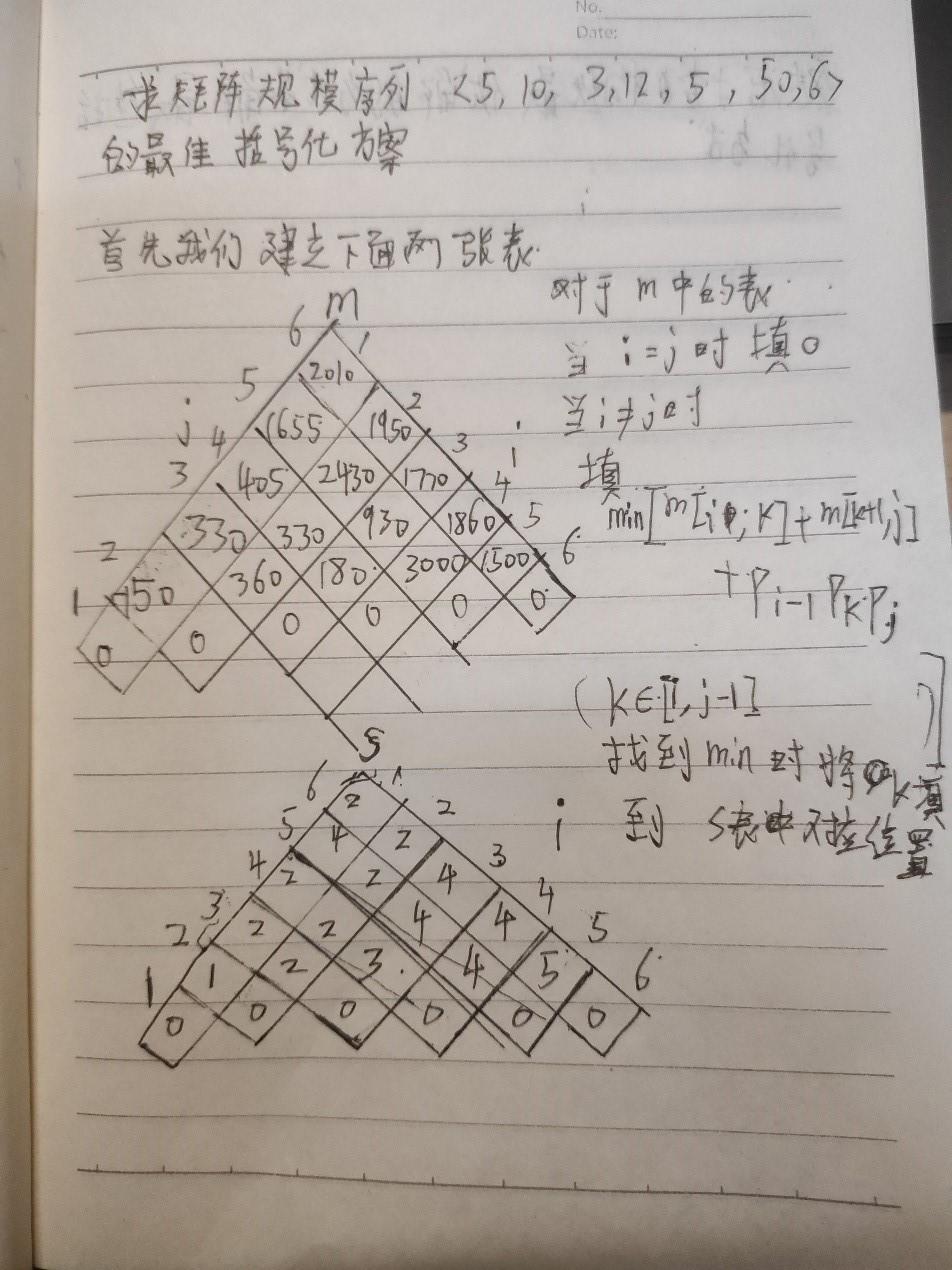 No.
Date:
求矩阵规模序列 <5, 10, 3, 12, 5, 50, 6>
的最佳括号化方案
首先我们建立下面两张表
对于 m 中的表
当 i = j 时 填 0
当 i ≠ j 时
填
min[m[i, k] + m[k+1, j]
+ P_{i-1} P_k P_j
(k∈[1, j-1]
找到 min 时将 k 填
到 S表中对应位置
m
6 1
5 2010
j 1655 1950 2 i
4 405 2430 1770 3
3 330 330 930 1860 4
2 150 360 180 3000 1500 5
1 0 0 0 0 0 0 6
S
6 2 1
5 4 2 2
4 2 2 4 3 i
3 2 2 4 4 4
2 1 2 3 4 5 5
1 0 0 0 0 0 0 6